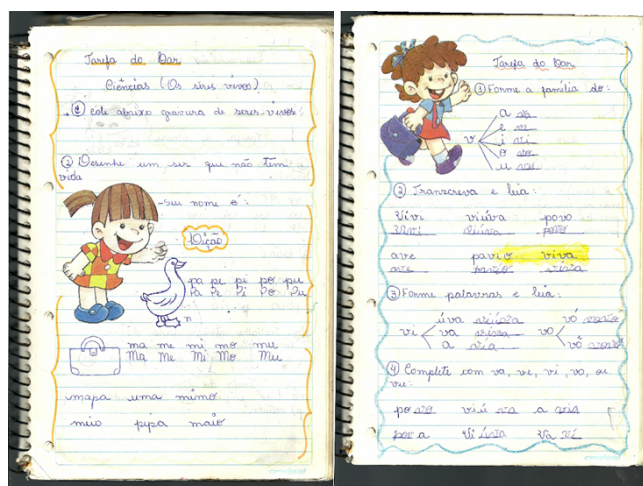 Tarefa do Lar
Ciências (Os seres vivos)
① cole abaixo gravura de seres vivos
② Desenhe um ser que não têm
vida
- Seu nome é:
Lição
pa pe pi po pu
Pa Pe Pi Po Pu
n
ma me mi mo mu
Ma Me Mi Mo Mu
mapa uma mimo
meio pipa maio
Tarefa do Lar
① Forme a família do:
a va
e ve
v i vi
o vo
u vu
② Transcreva e leia:
Vivi viúva povo
Vivi viúva povo
ave pavio viva
ave pavio viva
③ Forme palavras e leia:
úva viúva vó
vi va viva vo
a via vô
④ Complete com va, ve, vi, vo, ou
vu:
po vo viú va a